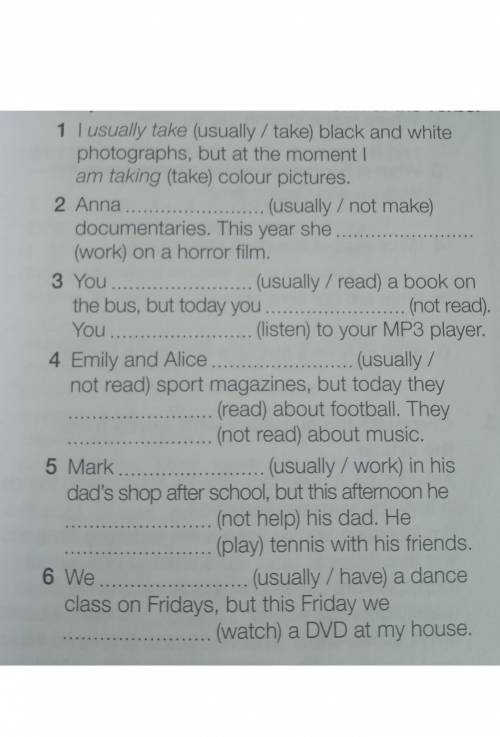 1 I usually take (usually / take) black and white
photographs, but at the moment I
am taking (take) colour pictures.
2 Anna ...................... (usually / not make)
documentaries. This year she ......................
(work) on a horror film.
3 You ...................... (usually / read) a book on
the bus, but today you ...................... (not read).
You ...................... (listen) to your MP3 player.
4 Emily and Alice ...................... (usually /
not read) sport magazines, but today they
...................... (read) about football. They
...................... (not read) about music.
5 Mark ...................... (usually / work) in his
dad's shop after school, but this afternoon he
...................... (not help) his dad. He
...................... (play) tennis with his friends.
6 We ...................... (usually / have) a dance
class on Fridays, but this Friday we
...................... (watch) a DVD at my house.